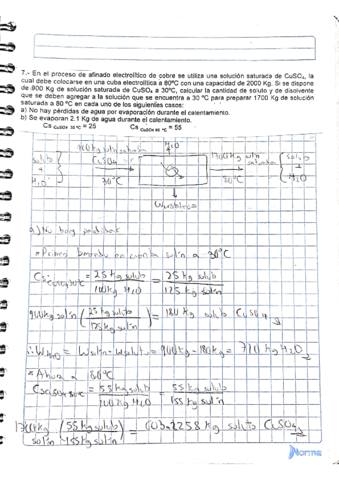 7.- En el proceso de afinado electrolítico de cobre se utiliza una solución saturada de CuSO₄, la
cual debe colocarse en una cuba electrolítica a 80ºC con una capacidad de 2000 Kg. Si se dispone
de 900 Kg de solución saturada de CuSO₄ a 30°C, calcular la cantidad de soluto y de disolvente
que se deben agregar a la solución que se encuentra a 30 ºC para preparar 1700 Kg de solución
saturada a 80 ºC en cada uno de los siguientes casos:
a) No hay pérdidas de agua por evaporación durante el calentamiento.
b) Se evaporan 2.1 Kg de agua durante el calentamiento.
Cs CuSO4 30 ºC = 25 Cs CuSO4 80 ºC = 55
900 Kg soln saturada H₂O 1700 Kg soln saturada
soluto + H₂O CuSO₄ soluto + H₂O
30°C 80°C
a) No hay
* Primero en cuenta soln a 30°C
Cs CuSO4 30°C = 25 Kg soluto / 100 Kg H₂O = 25 Kg soluto / 125 Kg soln
900 Kg soln (25 Kg soluto / 125 Kg soln) = 180 Kg soluto CuSO₄
∴ W H₂O = Wsoln - Wsoluto = 900 Kg - 180 Kg = 720 Kg H₂O
* Ahora a 80°C
Cs CuSO4 80°C = 55 Kg soluto / 100 Kg H₂O = 55 Kg soluto / 155 Kg soln
1700 Kg soln (55 Kg soluto / 155 Kg soln) = 603.2258 Kg soluto CuSO₄
Norma